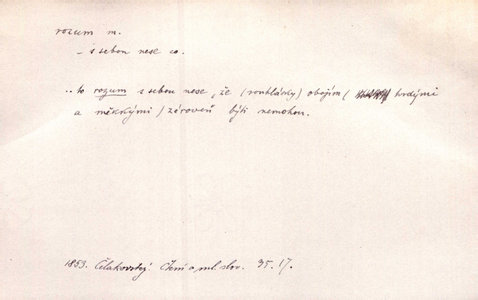 rozum m.
– s sebou nese co.
..to rozum s sebou nese, že (souhlásky) obojím ( tvrdými
a měkkými) zároveň býti nemohou.
1853. Čelakovský. Čtení o ml. slov. 35.17.